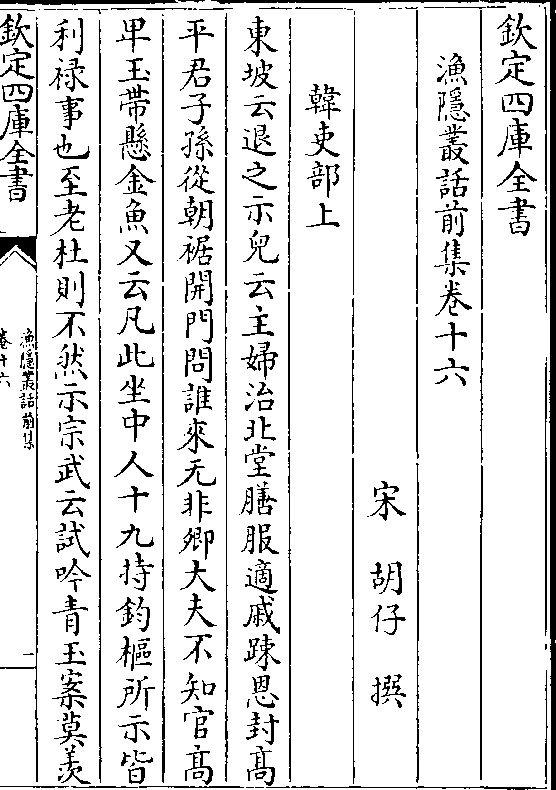 欽定四庫全書
漁隱叢話前集卷十六
宋 胡仔 撰
韓吏部上
東坡云退之示兒云主婦治北堂膳服適戚踈恩封髙
平君子孫從朝裾開門問誰來无非卿大夫不知官髙
卑玉帶懸金魚又云凡此坐中人十九持鈞樞所示皆
利禄事也至老杜則不然示宗武云試吟青玉案莫羡
欽定四庫全書
漁隱叢話前集
卷十六
一